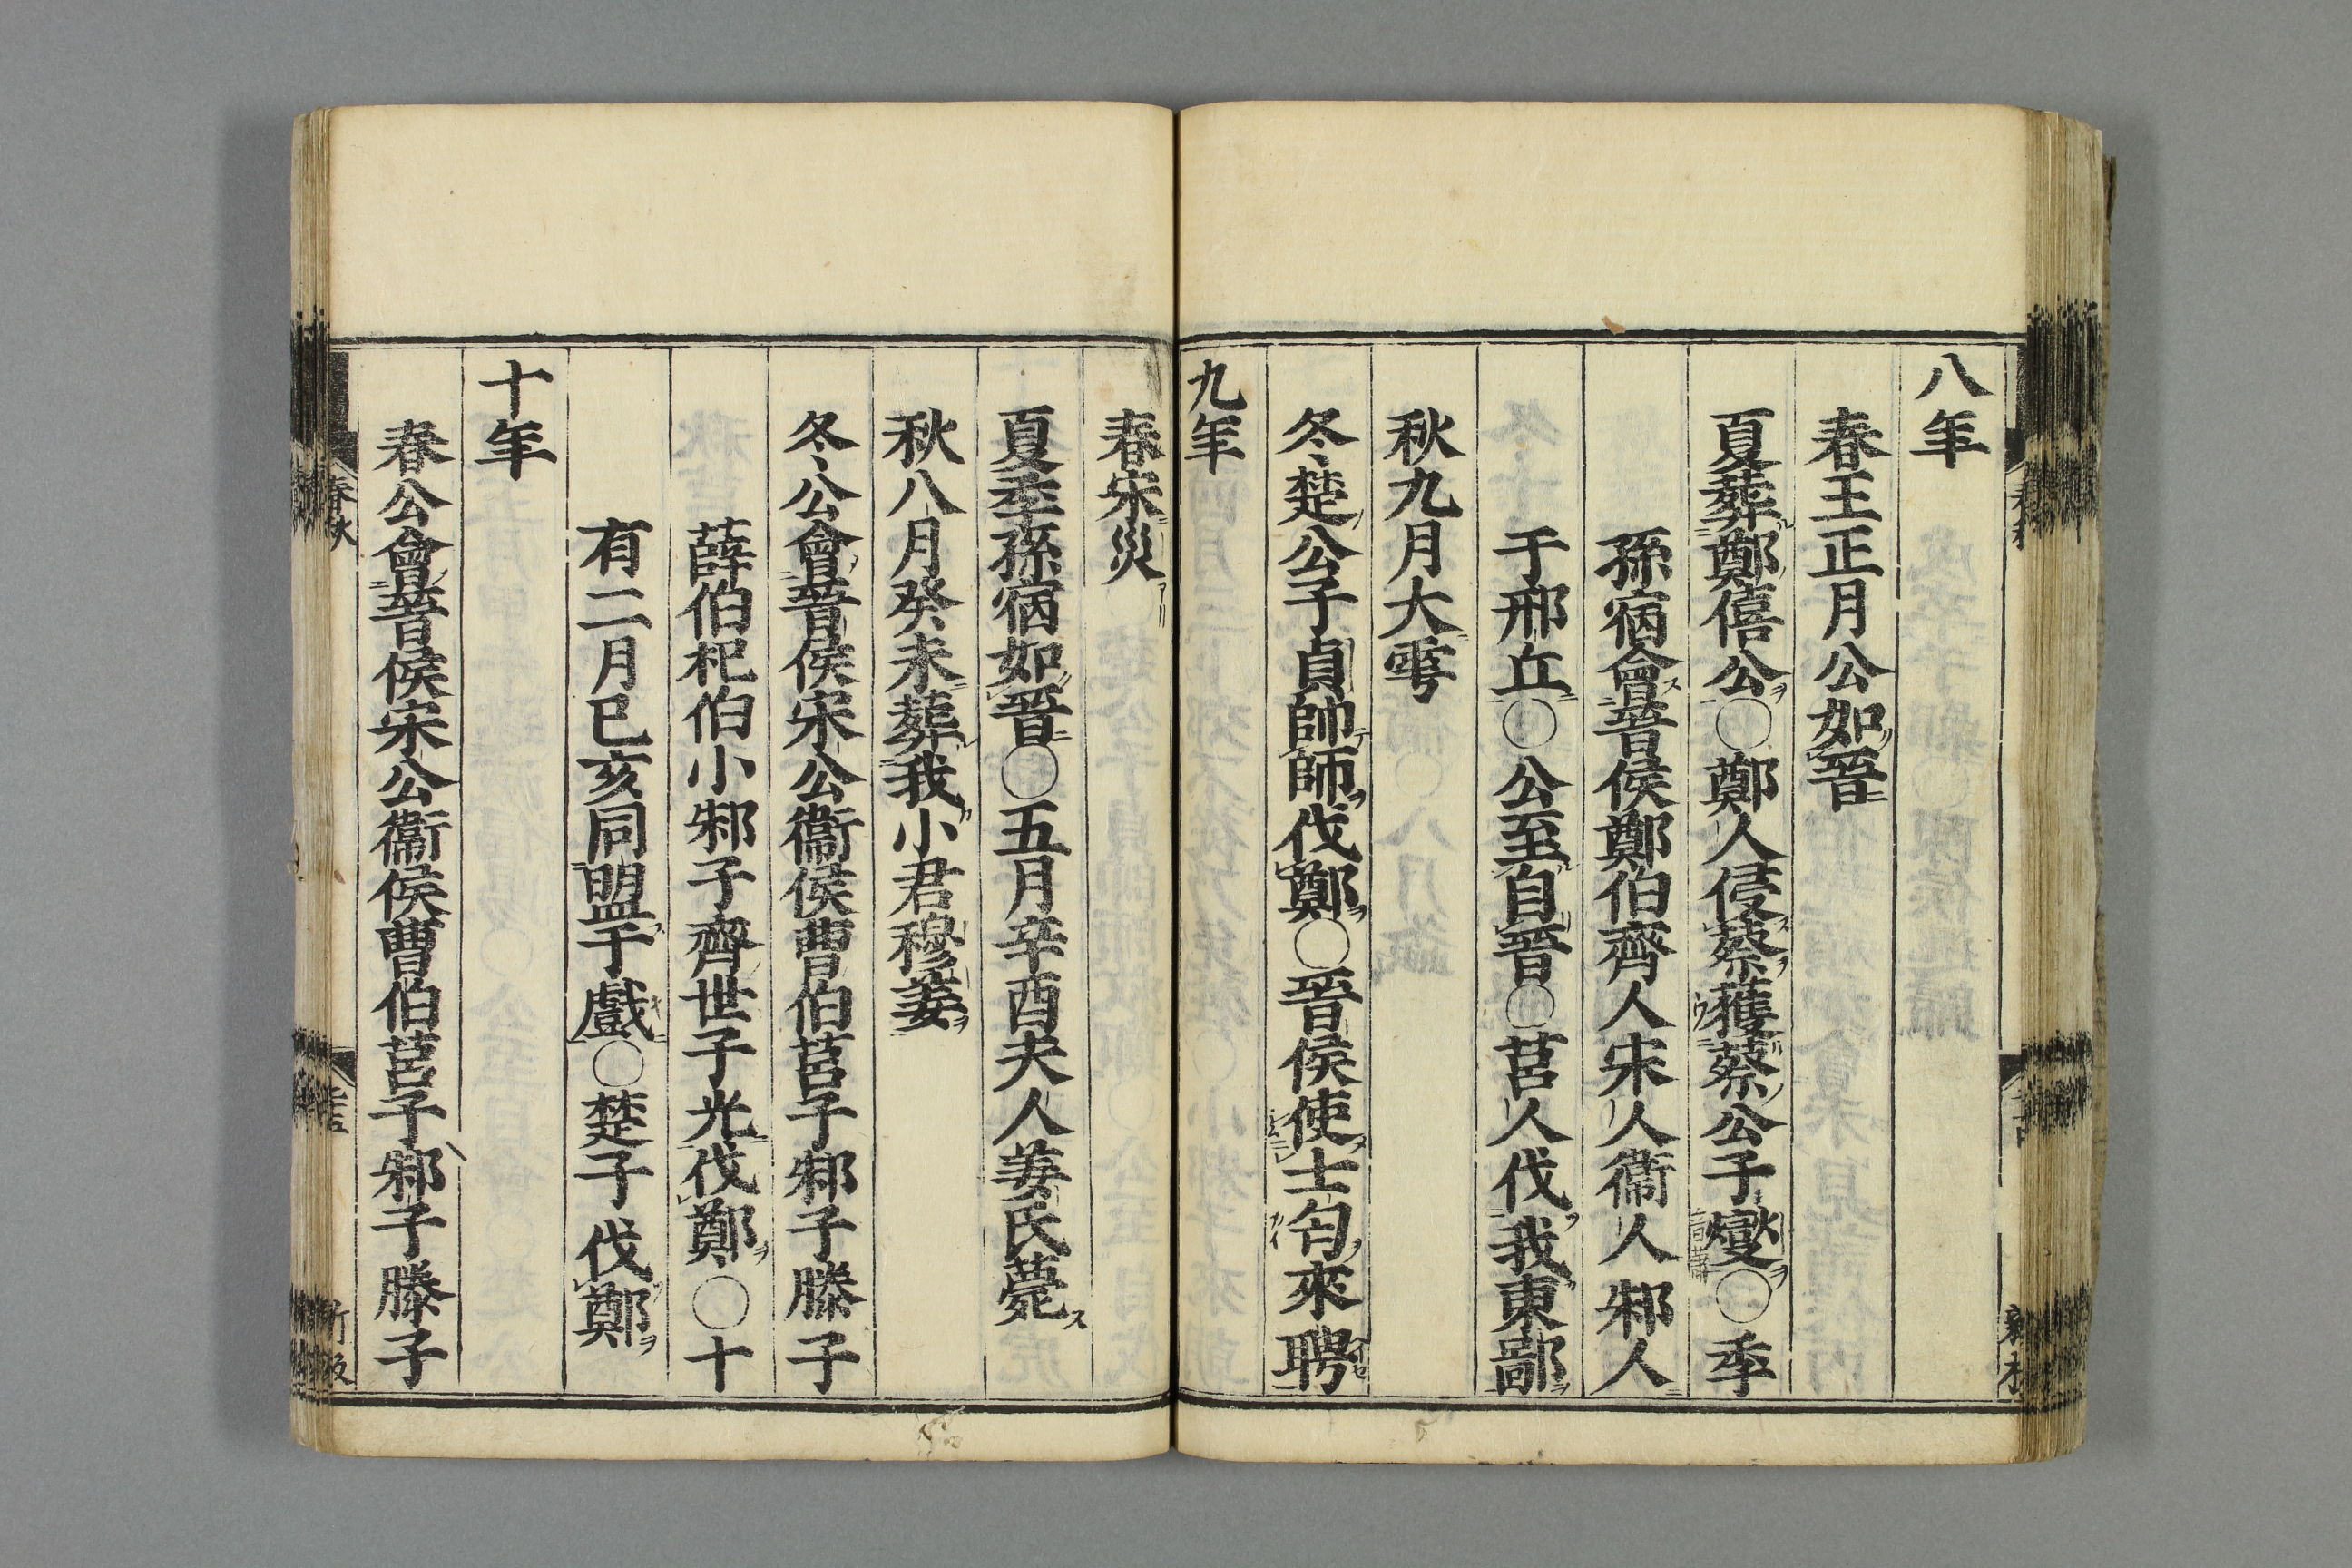 八年
春王正月公如晉
夏葬鄭僖公○鄭人侵蔡獲蔡公子燮○季
孫宿會晉侯鄭伯齊人宋人衞人邾人
于邢丘○公至自晉○莒人伐我東鄙
秋九月大雩
冬楚公子貞帥師伐鄭○晉侯使士匄來聘
九年
春宋災
夏季孫宿如晉○五月辛酉夫人姜氏薨
秋八月癸未葬我小君穆姜
冬公會晉侯宋公衞侯曹伯莒子邾子滕子
薛伯杞伯小邾子齊世子光伐鄭○十
有二月己亥同盟于戲○楚子伐鄭
十年
春公會晉侯宋公衞侯曹伯莒子邾子滕子
春秋